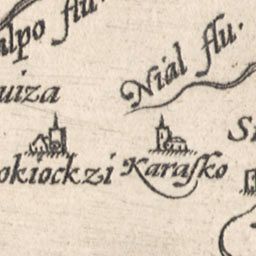 alpo flu.
Nial flu.
uiza
Si
okiockzi
Karaſko